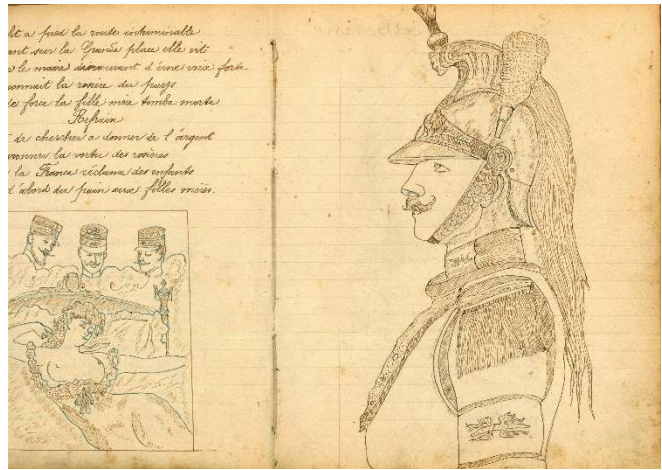 fit a pied la route interminable
ant sur la Grande place elle vit
le maire d'une voix forte
connait la rosière du pays
force la fille mère tomba morte
Refrain
de chercher a donner de l'argent
la vertu des rosières
la France réclame des enfants
d'abord du pain aux filles mères.